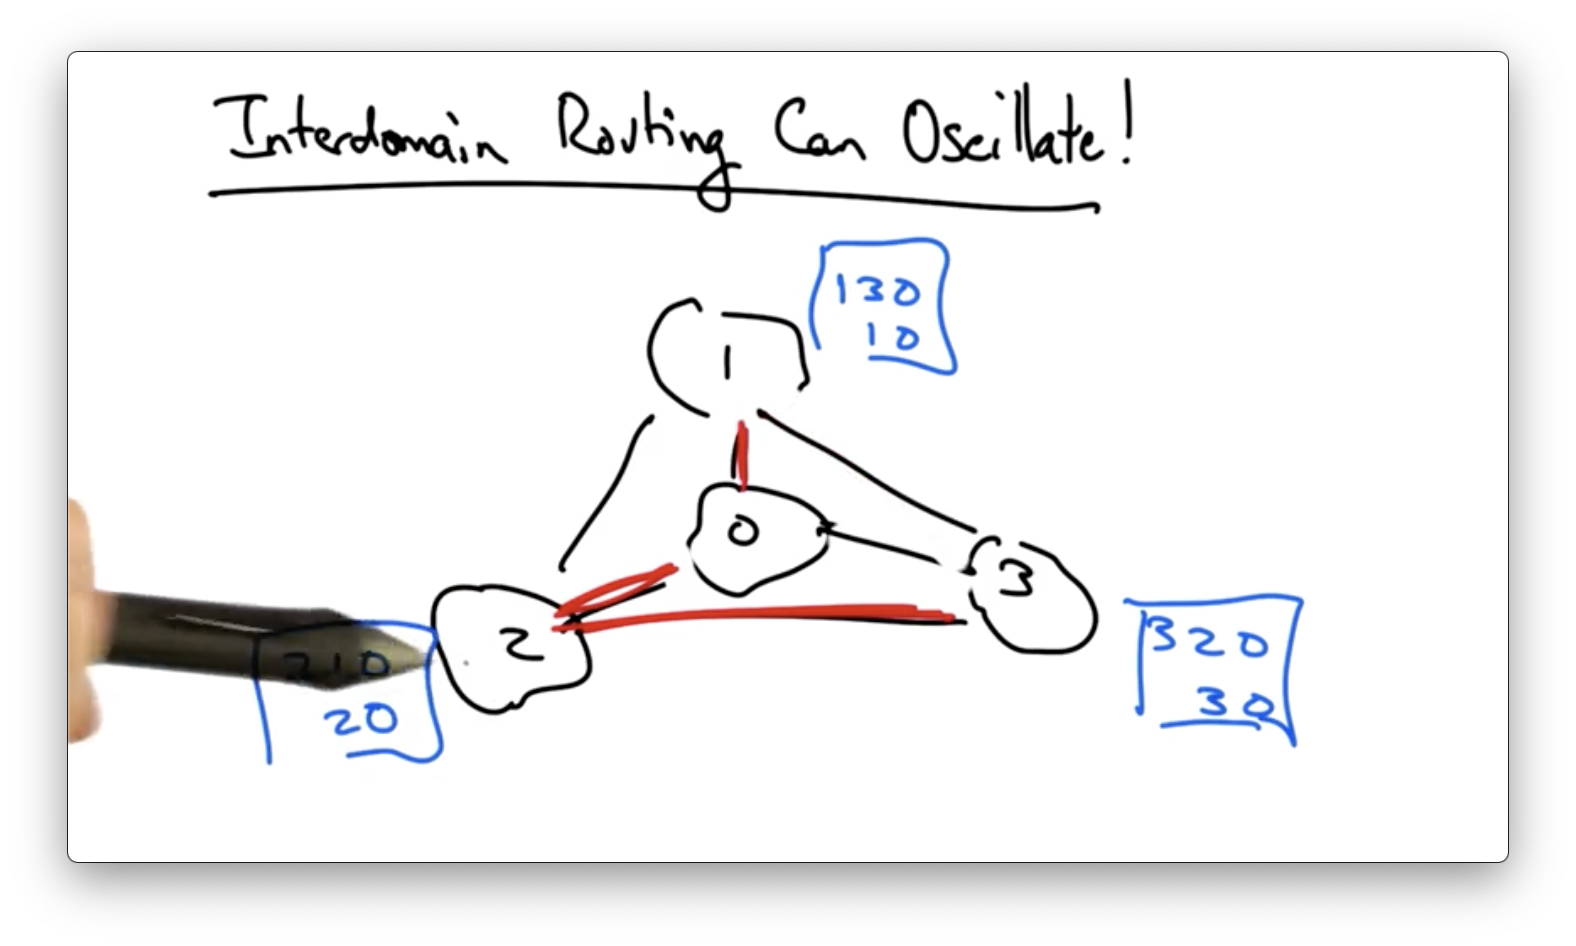 Interdomain Routing Can Oscillate!
130
10
1
0
3
2
320
30
210
20